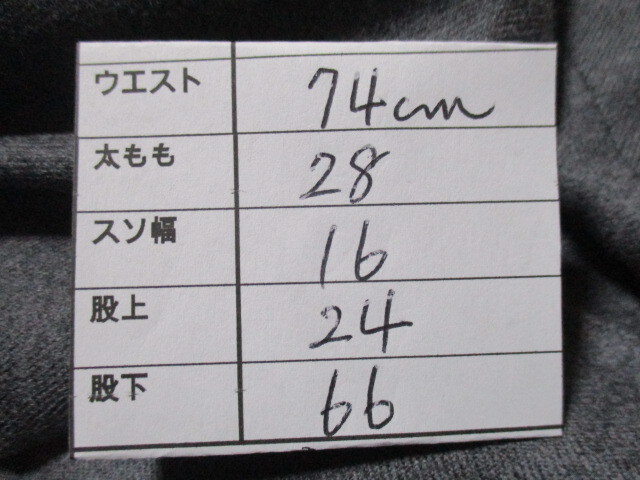 ウエスト 74cm
太もも 28
スソ幅 16
股上 24
股下 66